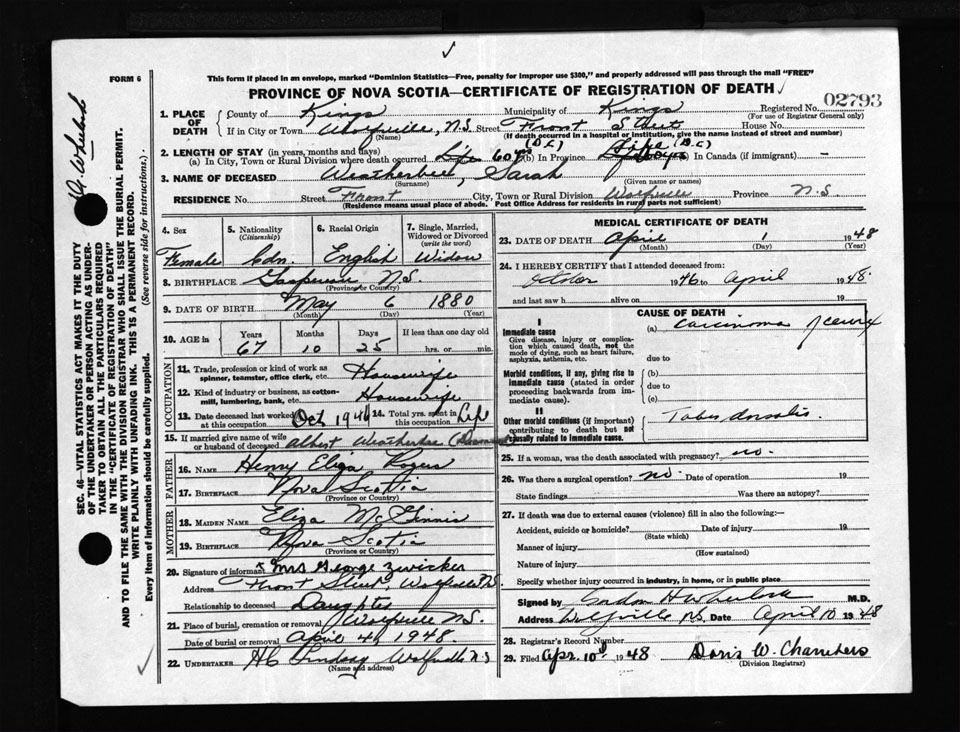 FORM 6
This form if placed in an envelope, marked "Dominion Statistics—Free, penalty for improper use $300," and properly addressed will pass through the mail "FREE"
PROVINCE OF NOVA SCOTIA—CERTIFICATE OF REGISTRATION OF DEATH
02793
1. PLACE OF DEATH
County of Kings Municipality of Kings Registered No.
(For use of Registrar General only)
If in City or Town Wolfville, N.S. Street Front Street House No.
(Name) (If death occurred in a hospital or institution, give the name instead of street and number)
2. LENGTH OF STAY (in years, months and days) (D.C.) Life (D.C.)
(a) In City, Town or Rural Division where death occurred Life 60 yrs (b) In Province (c) In Canada (if immigrant) —
3. NAME OF DECEASED Weatherbee, Sarah
(Surname) (Given name or names)
RESIDENCE No. Street Front City, Town or Rural Division Wolfville Province N.S
(Residence means usual place of abode. Post Office Address for residents in rural parts not sufficient)
4. Sex
Female
5. Nationality (Citizenship)
Cdn.
6. Racial Origin
English
7. Single, Married, Widowed or Divorced (write the word)
Widow
8. BIRTHPLACE Gaspereau N.S.
(Province or Country)
9. DATE OF BIRTH May 6 1880
(Month) (Day) (Year)
10. AGE in Years Months Days If less than one day old
67 10 25 hrs. or min.
OCCUPATION
11. Trade, profession or kind of work as spinner, teamster, office clerk, etc. Housewife
12. Kind of industry or business, as cotton-mill, lumbering, bank, etc. Housewife
13. Date deceased last worked at this occupation Oct 1946 14. Total yrs. spent in this occupation Life
15. If married give name of wife or husband of deceased Albert Weatherbee
FATHER
16. NAME Henry Eliza Rogers
17. BIRTHPLACE Nova Scotia
(Province or Country)
MOTHER
18. MAIDEN NAME Eliza McGinnis
19. BIRTHPLACE Nova Scotia
(Province or Country)
20. Signature of informant x Mrs George Zwicker
Address Front Street Wolfville N.S.
Relationship to deceased Daughter
21. Place of burial, cremation or removal Wolfville N.S.
Date of burial or removal April 4, 1948.
22. UNDERTAKER H C Lindsay Wolfville N.S
(Name and address)
MEDICAL CERTIFICATE OF DEATH
23. DATE OF DEATH April 1 1948
(Month) (Day) (Year)
24. I HEREBY CERTIFY that I attended deceased from:
October 1946 to April 1948.
and last saw h alive on 19
CAUSE OF DEATH
I
Immediate cause
Give disease, injury or complication which caused death, not the mode of dying, such as heart failure, asphyxia, asthenia, etc.
(a) Carcinoma of cervix
due to
Morbid conditions, if any, giving rise to immediate cause (stated in order proceeding backwards from immediate cause)
(b)
due to
(c)
II
Other morbid conditions (if important) contributing to death but not causally related to immediate cause.
Tabes dorsalis.
25. If a woman, was the death associated with pregnancy? no.
26. Was there a surgical operation? no Date of operation 19
State findings Was there an autopsy?
27. If death was due to external causes (violence) fill in also the following:—
Accident, suicide or homicide? Date of injury 19
(State which)
Manner of injury
(How sustained)
Nature of injury
Specify whether injury occurred in industry, in home, or in public place
Signed by Gordon H Wheelock M.D.
Address Wolfville N.S. Date April 10 1948
28. Registrar's Record Number
29. Filed Apr. 10th 1948 Doris W. Chambers
(Division Registrar)
SEC. 46—VITAL STATISTICS ACT MAKES IT THE DUTY OF THE UNDERTAKER OR PERSON ACTING AS UNDERTAKER TO OBTAIN ALL THE PARTICULARS REQUIRED IN THE "CERTIFICATE OF REGISTRATION OF DEATH" AND TO FILE THE SAME WITH THE DIVISION REGISTRAR WHO SHALL ISSUE THE BURIAL PERMIT.
WRITE PLAINLY WITH UNFADING INK. THIS IS A PERMANENT RECORD.
Every item of information should be carefully supplied. (See reverse side for instructions.)